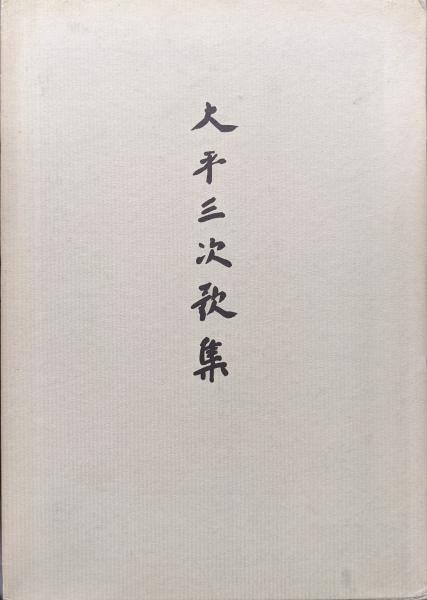 大平三次歌集